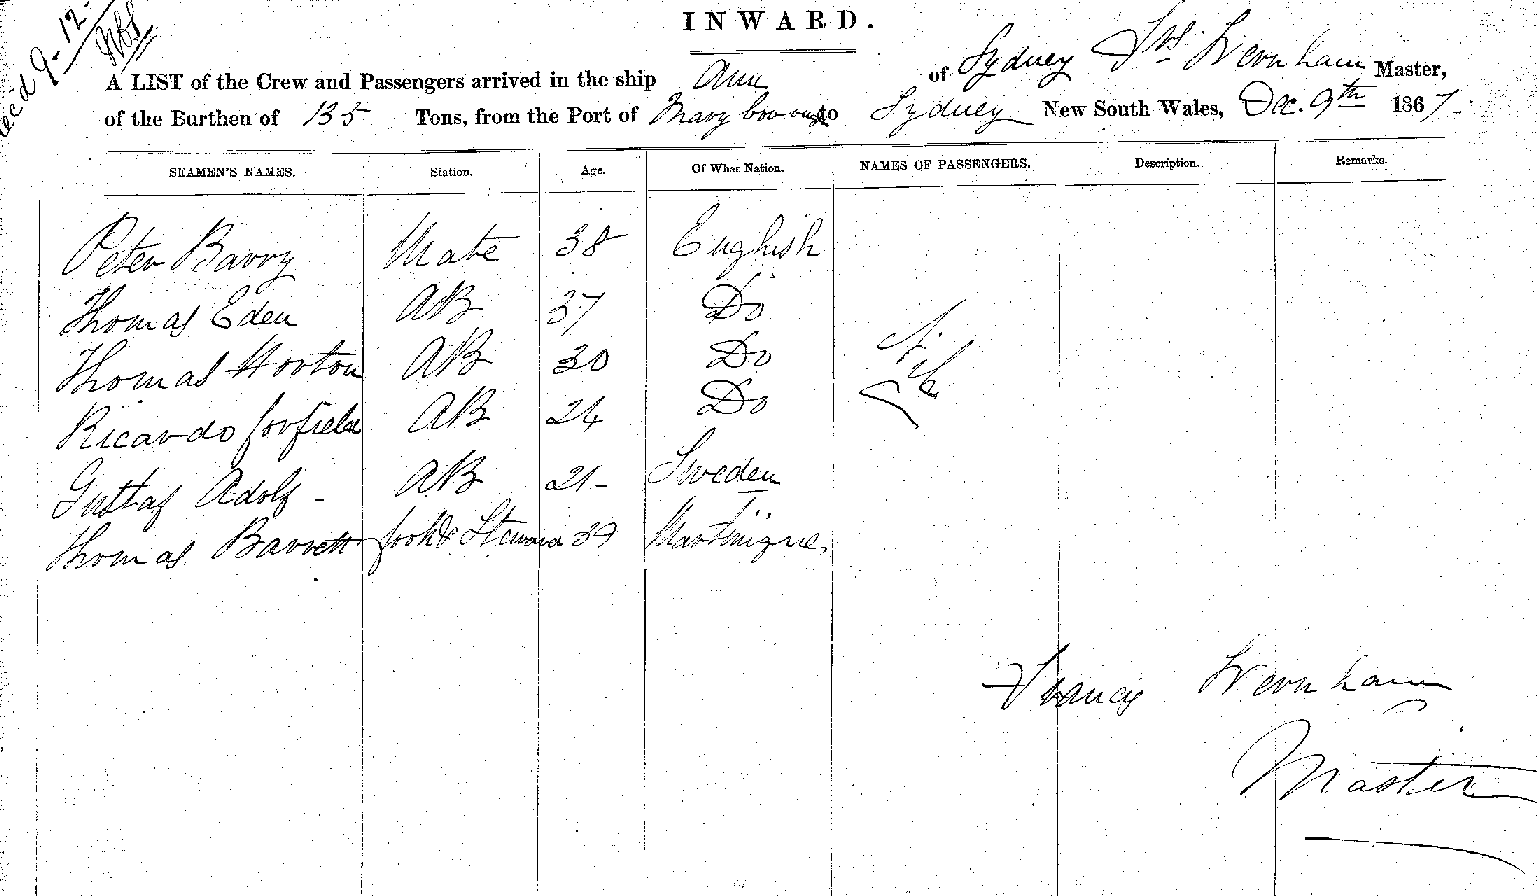 Recd 9-12-
INWARD.
A LIST of the Crew and Passengers arrived in the ship Ann of Sydney Frs. Wernham Master,
of the Burthen of 135 Tons, from the Port of Maryborough to Sydney New South Wales, Dec. 9th 1867.
SEAMEN'S NAMES. Station. Age. Of What Nation. NAMES OF PASSENGERS. Description. Remarks.
Peter Barry Mate 38 English
Thomas Eden AB 37 Do
Thomas Horton AB 30 Do Nil
Ricardo AB 24 Do
Gustaf Adolf - AB 21- Sweden
Thomas Barrett Cook & Steward 39 Martinique.
Francis Wernham
Master